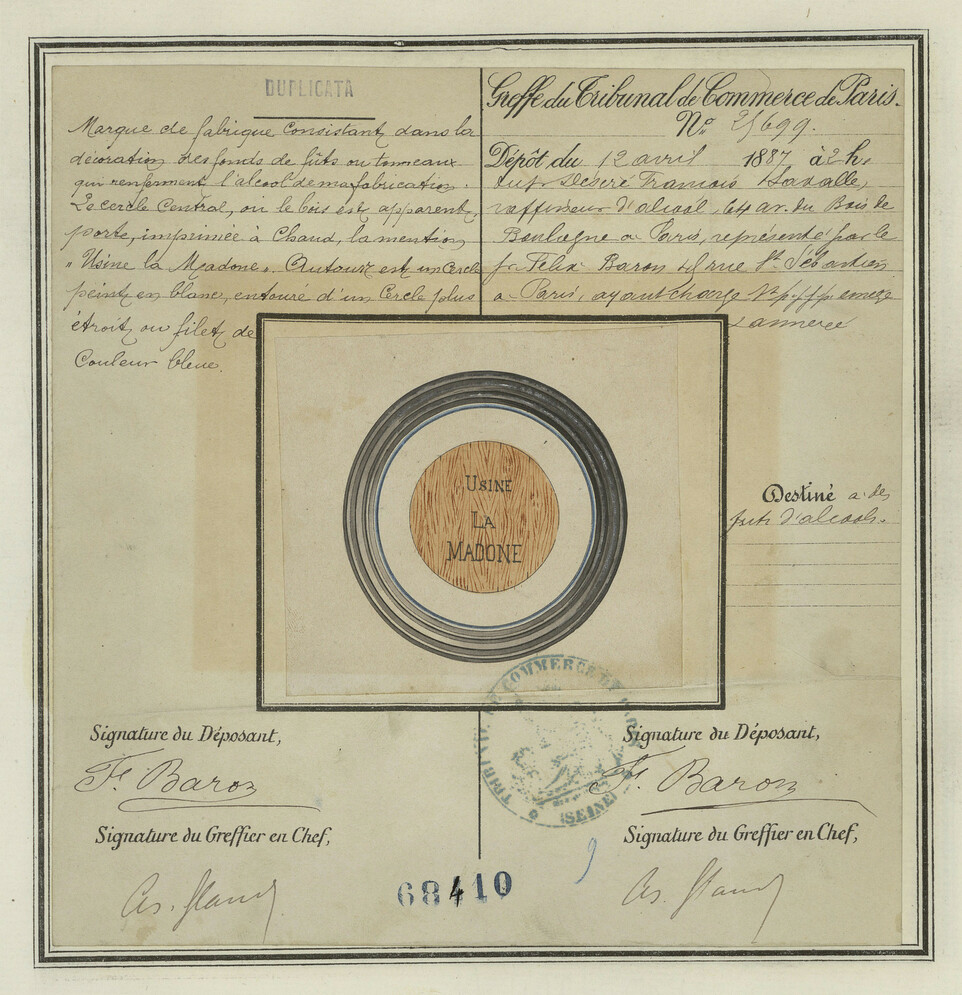 DUPLICATA
Marque de fabrique Consistant dans la
décoration des fonds de fûts ou tonneaux
qui renferment l'alcool de ma fabrication.
Le cercle Central, où le bois est apparent,
porte, imprimée à Chaud, la mention
"Usine la Madone". Autour est un Cercle
peint en blanc, entouré d'un Cercle plus
étroit ou filet de
Couleur bleue.
Greffe du Tribunal de Commerce de Paris.
No. 25699.
Dépôt du 12 avril 1887 à 2 h.
Désiré François Lavalle,
raffineur d'alcool, 64 av. du Bois de
Boulogne a Paris, représenté par le
Félix Baron 48 rue St. Sébastien
a Paris, ayant charge
USINE
LA
MADONE
Destiné a des
futs d'alcools.
TRIBUNAL DE COMMERCE DE
SEINE
Signature du Déposant,
F. Baron
Signature du Greffier en Chef,
Signature du Déposant,
F. Baron
Signature du Greffier en Chef,
68410
9